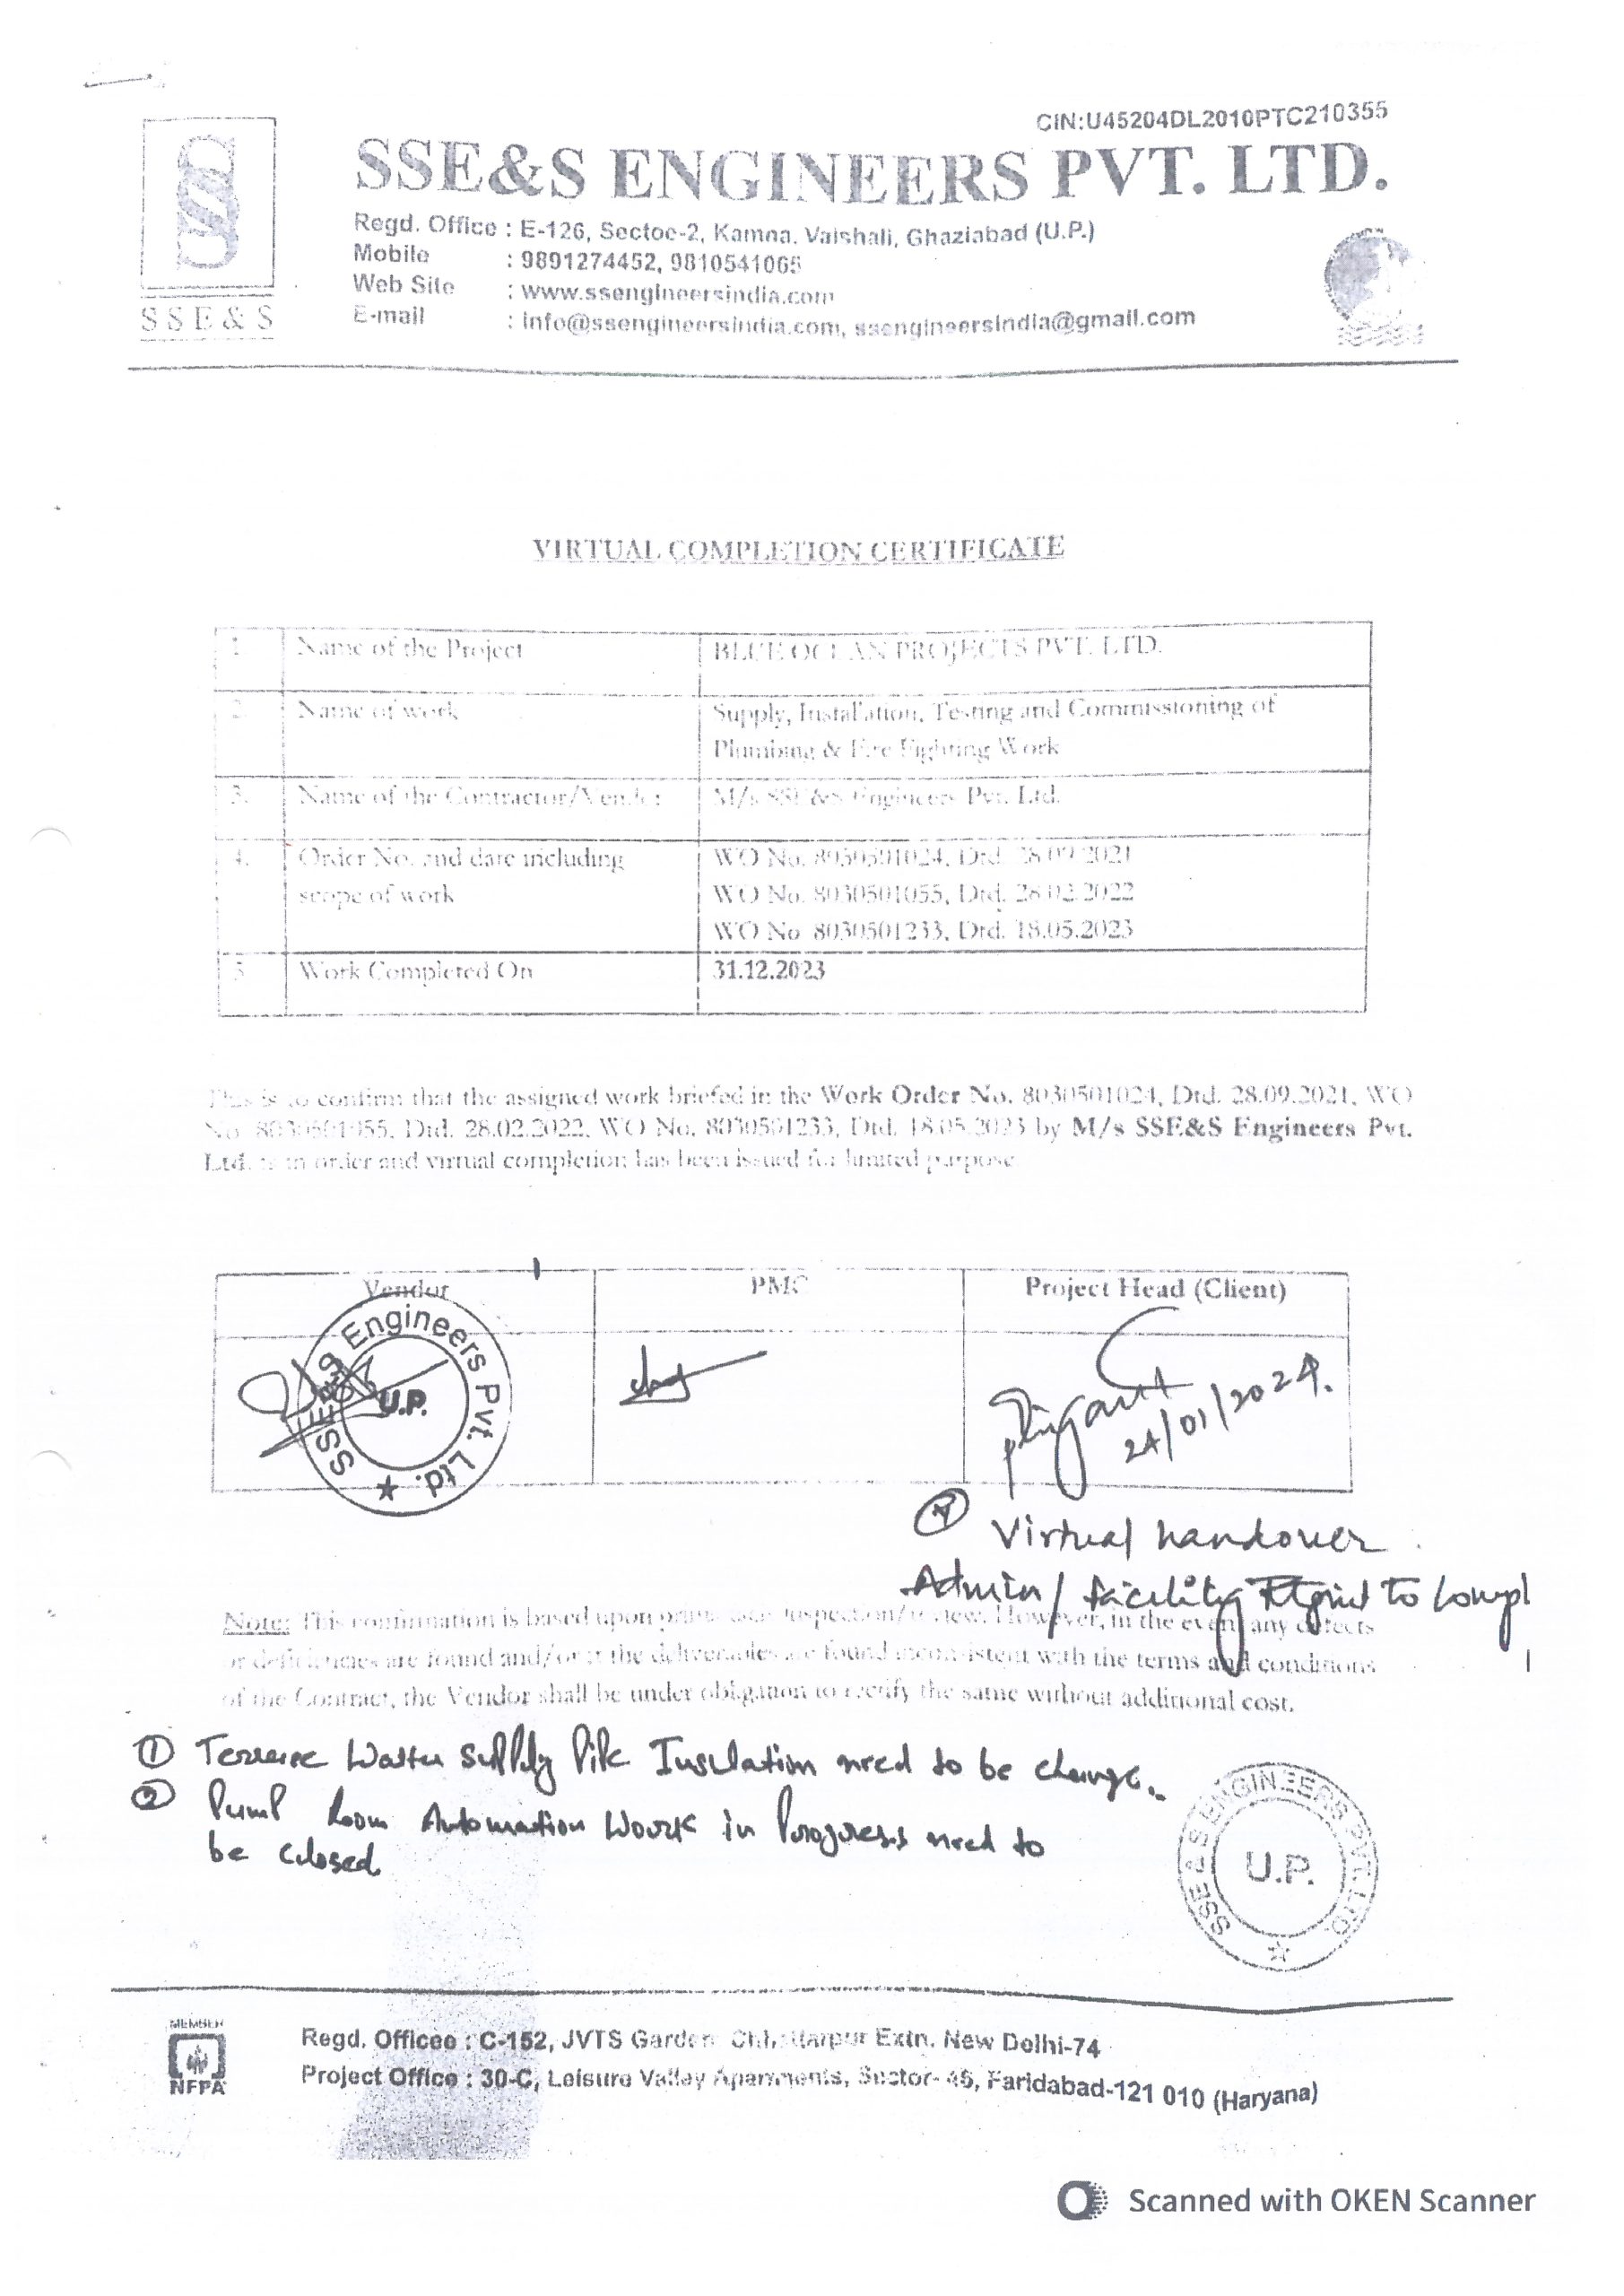 CIN:U45204DL2010PTC210355
SSE&S ENGINEERS PVT. LTD.
Regd. Office : E-126, Sectoc-2, Kamna. Vaishali, Ghaziabad (U.P.)
Mobile : 9891274452, 9810541065
Web Site : www.ssengineersindia.com
E-mail : info@ssengineersindia.com, ssengineersindia@gmail.com
SSE&S
VIRTUAL COMPLETION CERTIFICATE
1. Name of the Project BLUE OCEAN PROJECTS PVT. LTD.
2. Name of work Supply, Installation, Testing and Commissioning of
Plumbing & Fire Fighting Work
3. Name of the Contractor/Vendor M/s SSE&S Engineers Pvt. Ltd.
4. Order No. and date including WO No. 8030501024, Dtd. 28.09.2021
scope of work WO No. 8030501055, Dtd. 28.02.2022
WO No 8030501233, Dtd. 18.05.2023
5. Work Completed On 31.12.2023
This is to confirm that the assigned work briefed in the Work Order No. 8030501024, Dtd. 28.09.2021, WO
No. 8030501055, Dtd. 28.02.2022, WO No. 8030501233, Dtd. 18.05.2023 by M/s SSE&S Engineers Pvt.
Ltd. is in order and virtual completion has been issued for limited purpose
Vendor PMC Project Head (Client)
SSE&S Engineers Pvt. Ltd.
U.P.
24/01/2024.
Virtual handover
Admin / facility to
Note: This confirmation is based upon prima facie inspection/review. However, in the event any defects
or deficiencies are found and/or if the deliverables are found inconsistent with the terms and conditions
of the Contract, the Vendor shall be under obligation to rectify the same without additional cost.
① Terrace Watter Supply Pipe Insulation need to be change.
② Pump Room Automation Work in Progress need to
be closed
SSE & S ENGINEERS PVT. LTD.
U.P.
MEMBER
NFPA
Regd. Officeo : C-152, JVTS Garden Chhattarpur Extn. New Delhi-74
Project Office : 30-C, Leisure Valley Apartments, Sector- 46, Faridabad-121 010 (Haryana)
Scanned with OKEN Scanner